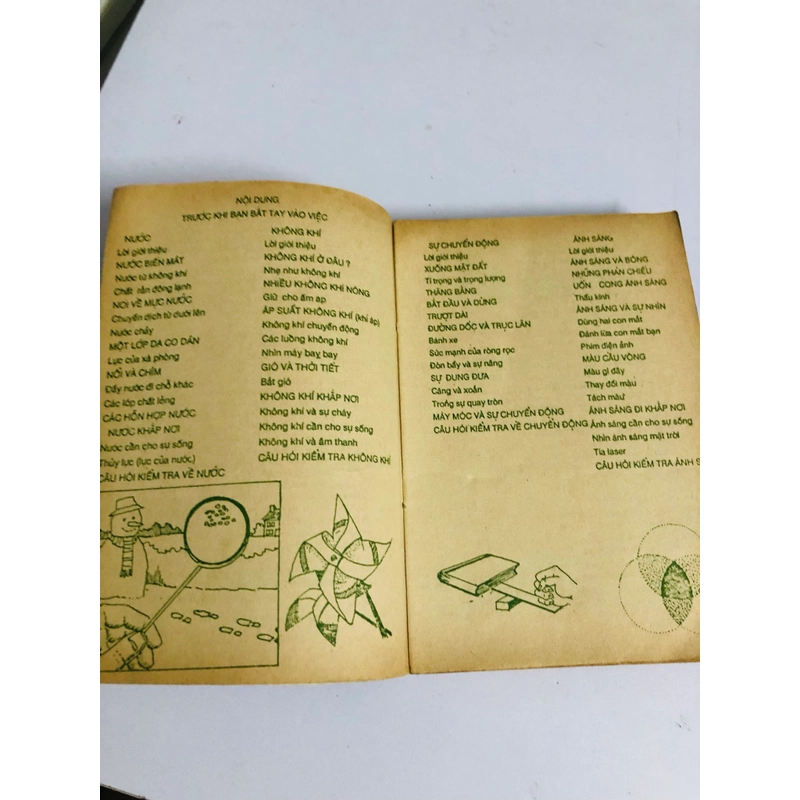 NỘI DUNG
TRƯỚC KHI BẠN BẮT TAY VÀO VIỆC
NƯỚC
Lời giới thiệu
NƯỚC BIẾN MẤT
Nước từ không khí
Chất rắn đông lạnh
NÓI VỀ MỰC NƯỚC
Chuyển dịch từ dưới lên
Nước chảy
MỘT LỚP DA CO DÃN
Lực của xà phòng
NỔI VÀ CHÌM
Đẩy nước đi chỗ khác
Các lớp chất lỏng
CÁC HỖN HỢP NƯỚC
NƯỚC KHẮP NƠI
Nước cần cho sự sống
Thủy lực (lực của nước)
CÂU HỎI KIỂM TRA VỀ NƯỚC
KHÔNG KHÍ
Lời giới thiệu
KHÔNG KHÍ Ở ĐÂU ?
Nhẹ như không khí
NHIỀU KHÔNG KHÍ NÓNG
Giữ cho ấm áp
ÁP SUẤT KHÔNG KHÍ (khí áp)
Không khí chuyển động
Các luồng không khí
Nhìn máy bay bay
GIÓ VÀ THỜI TIẾT
Bắt gió
KHÔNG KHÍ KHẮP NƠI
Không khí và sự cháy
Không khí cần cho sự sống
Không khí và âm thanh
CÂU HỎI KIỂM TRA KHÔNG KHÍ
SỰ CHUYỂN ĐỘNG
Lời giới thiệu
XUỐNG MẶT ĐẤT
Tỉ trọng và trọng lượng
THĂNG BẰNG
BẮT ĐẦU VÀ DỪNG
TRƯỢT DÀI
ĐƯỜNG DỐC VÀ TRỤC LĂN
Bánh xe
Sức mạnh của ròng rọc
Đòn bẩy và sự nâng
SỰ ĐUNG ĐƯA
Căng và xoắn
Trong sự quay tròn
MÁY MÓC VÀ SỰ CHUYỂN ĐỘNG
CÂU HỎI KIỂM TRA VỀ CHUYỂN ĐỘNG
ÁNH SÁNG
Lời giới thiệu
ÁNH SÁNG VÀ BÓNG
NHỮNG PHẢN CHIẾU
UỐN CONG ÁNH SÁNG
Thấu kính
ÁNH SÁNG VÀ SỰ NHÌN
Dùng hai con mắt
Đánh lừa con mắt bạn
Phim điện ảnh
MÀU CẦU VỒNG
Màu gì đây
Thay đổi màu
Tách màu
ÁNH SÁNG ĐI KHẮP NƠI
Ánh sáng cần cho sự sống
Nhìn ánh sáng mặt trời
Tia laser
CÂU HỎI KIỂM TRA ÁNH S